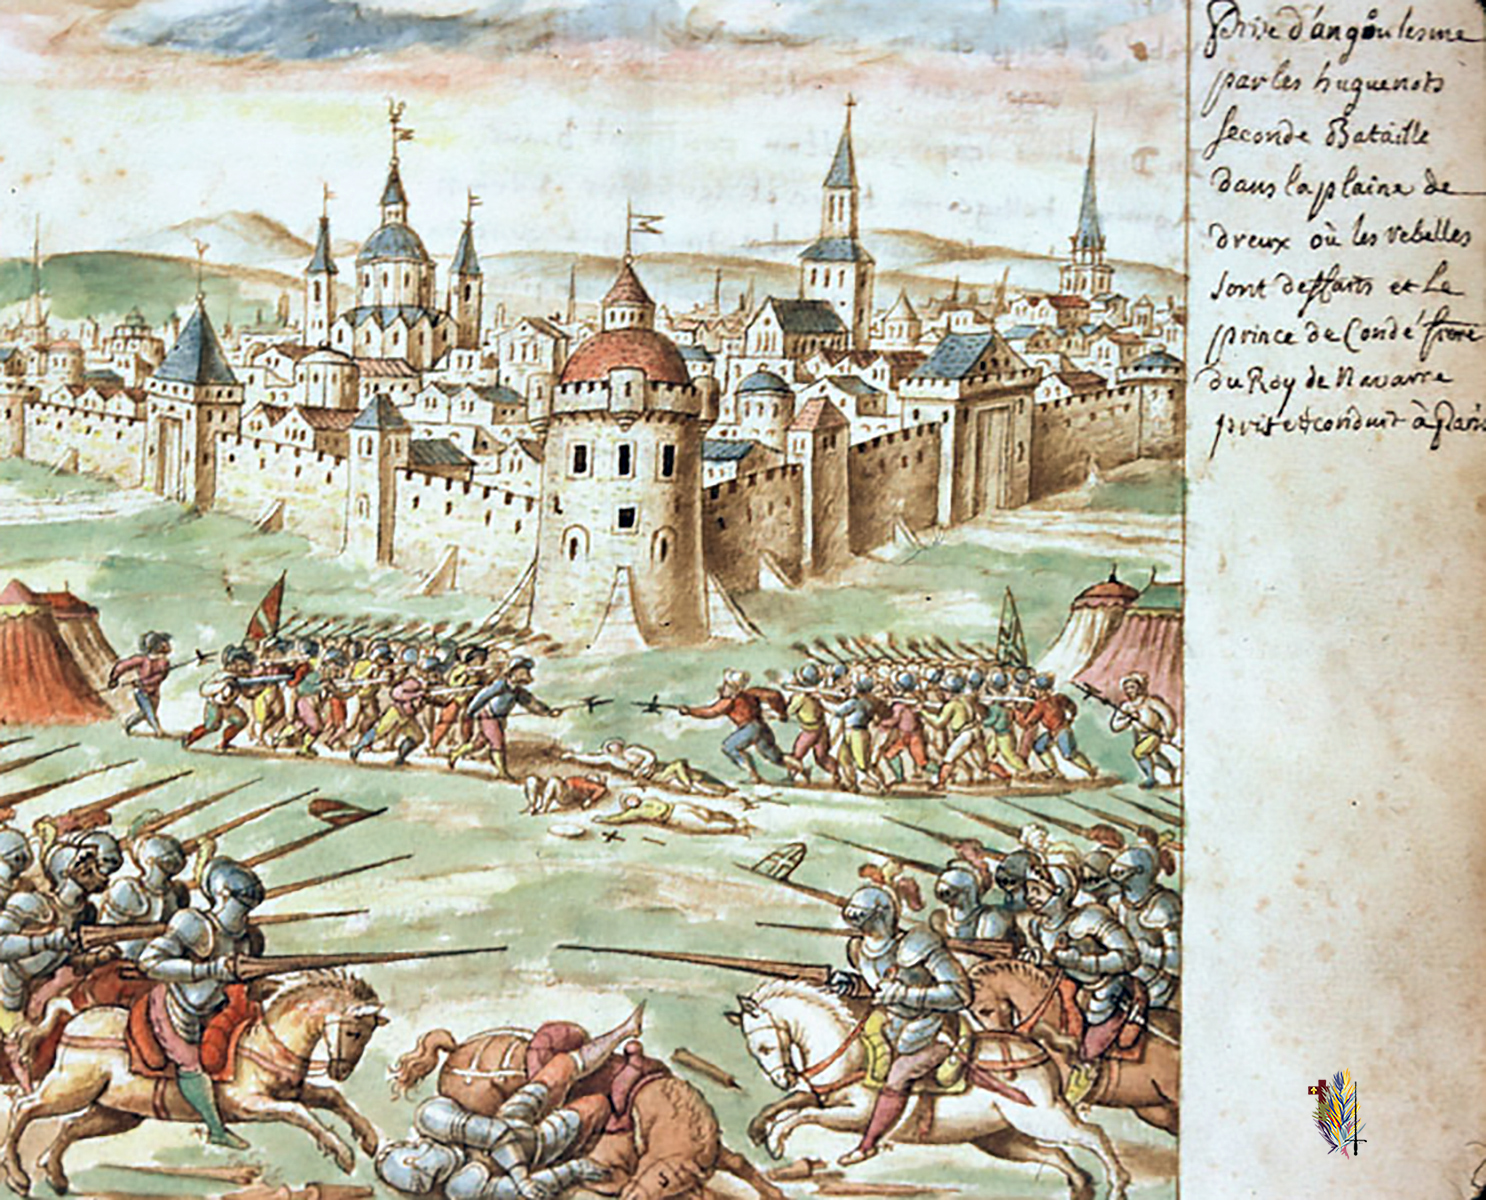 Prise d'angoulesme
par les huguenots
seconde Bataille
dans la plaine de
dreux où les rebelles
sont deffaits et le
prince de Condé frere
du Roy de Navarre
pris et conduit à Paris